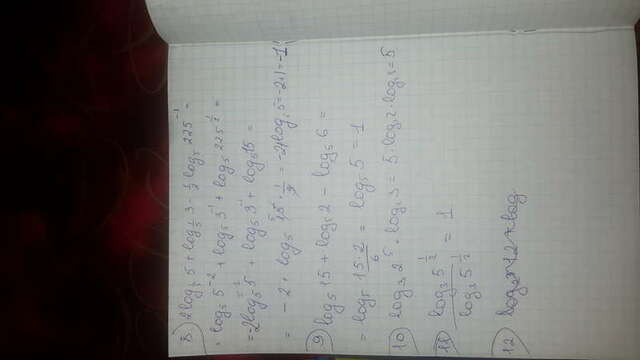 8) 2log_{1/5} 5 + log_{1/5} 3 - 1/2 log_5 225^{-1} =
= log_5 5^{-2} + log_5 3^{-1} + log_5 225^{1/2} =
= 2log_5 5 + log_5 3^{-1} + log_5 15 =
= - 2 + log_5 15 · 1/3 = -2 + log_5 5 = -2+1 = -1
9) log_5 15 + log_5 2 - log_5 6 =
= log_5 15·2/6 = log_5 5 = 1
10) log_3 2^5 · log_2 3 = 5 · log_3 2 · log_2 3 = 5
11) log_3 5^{1/2} / log_3 5^{1/2} = 1
12)